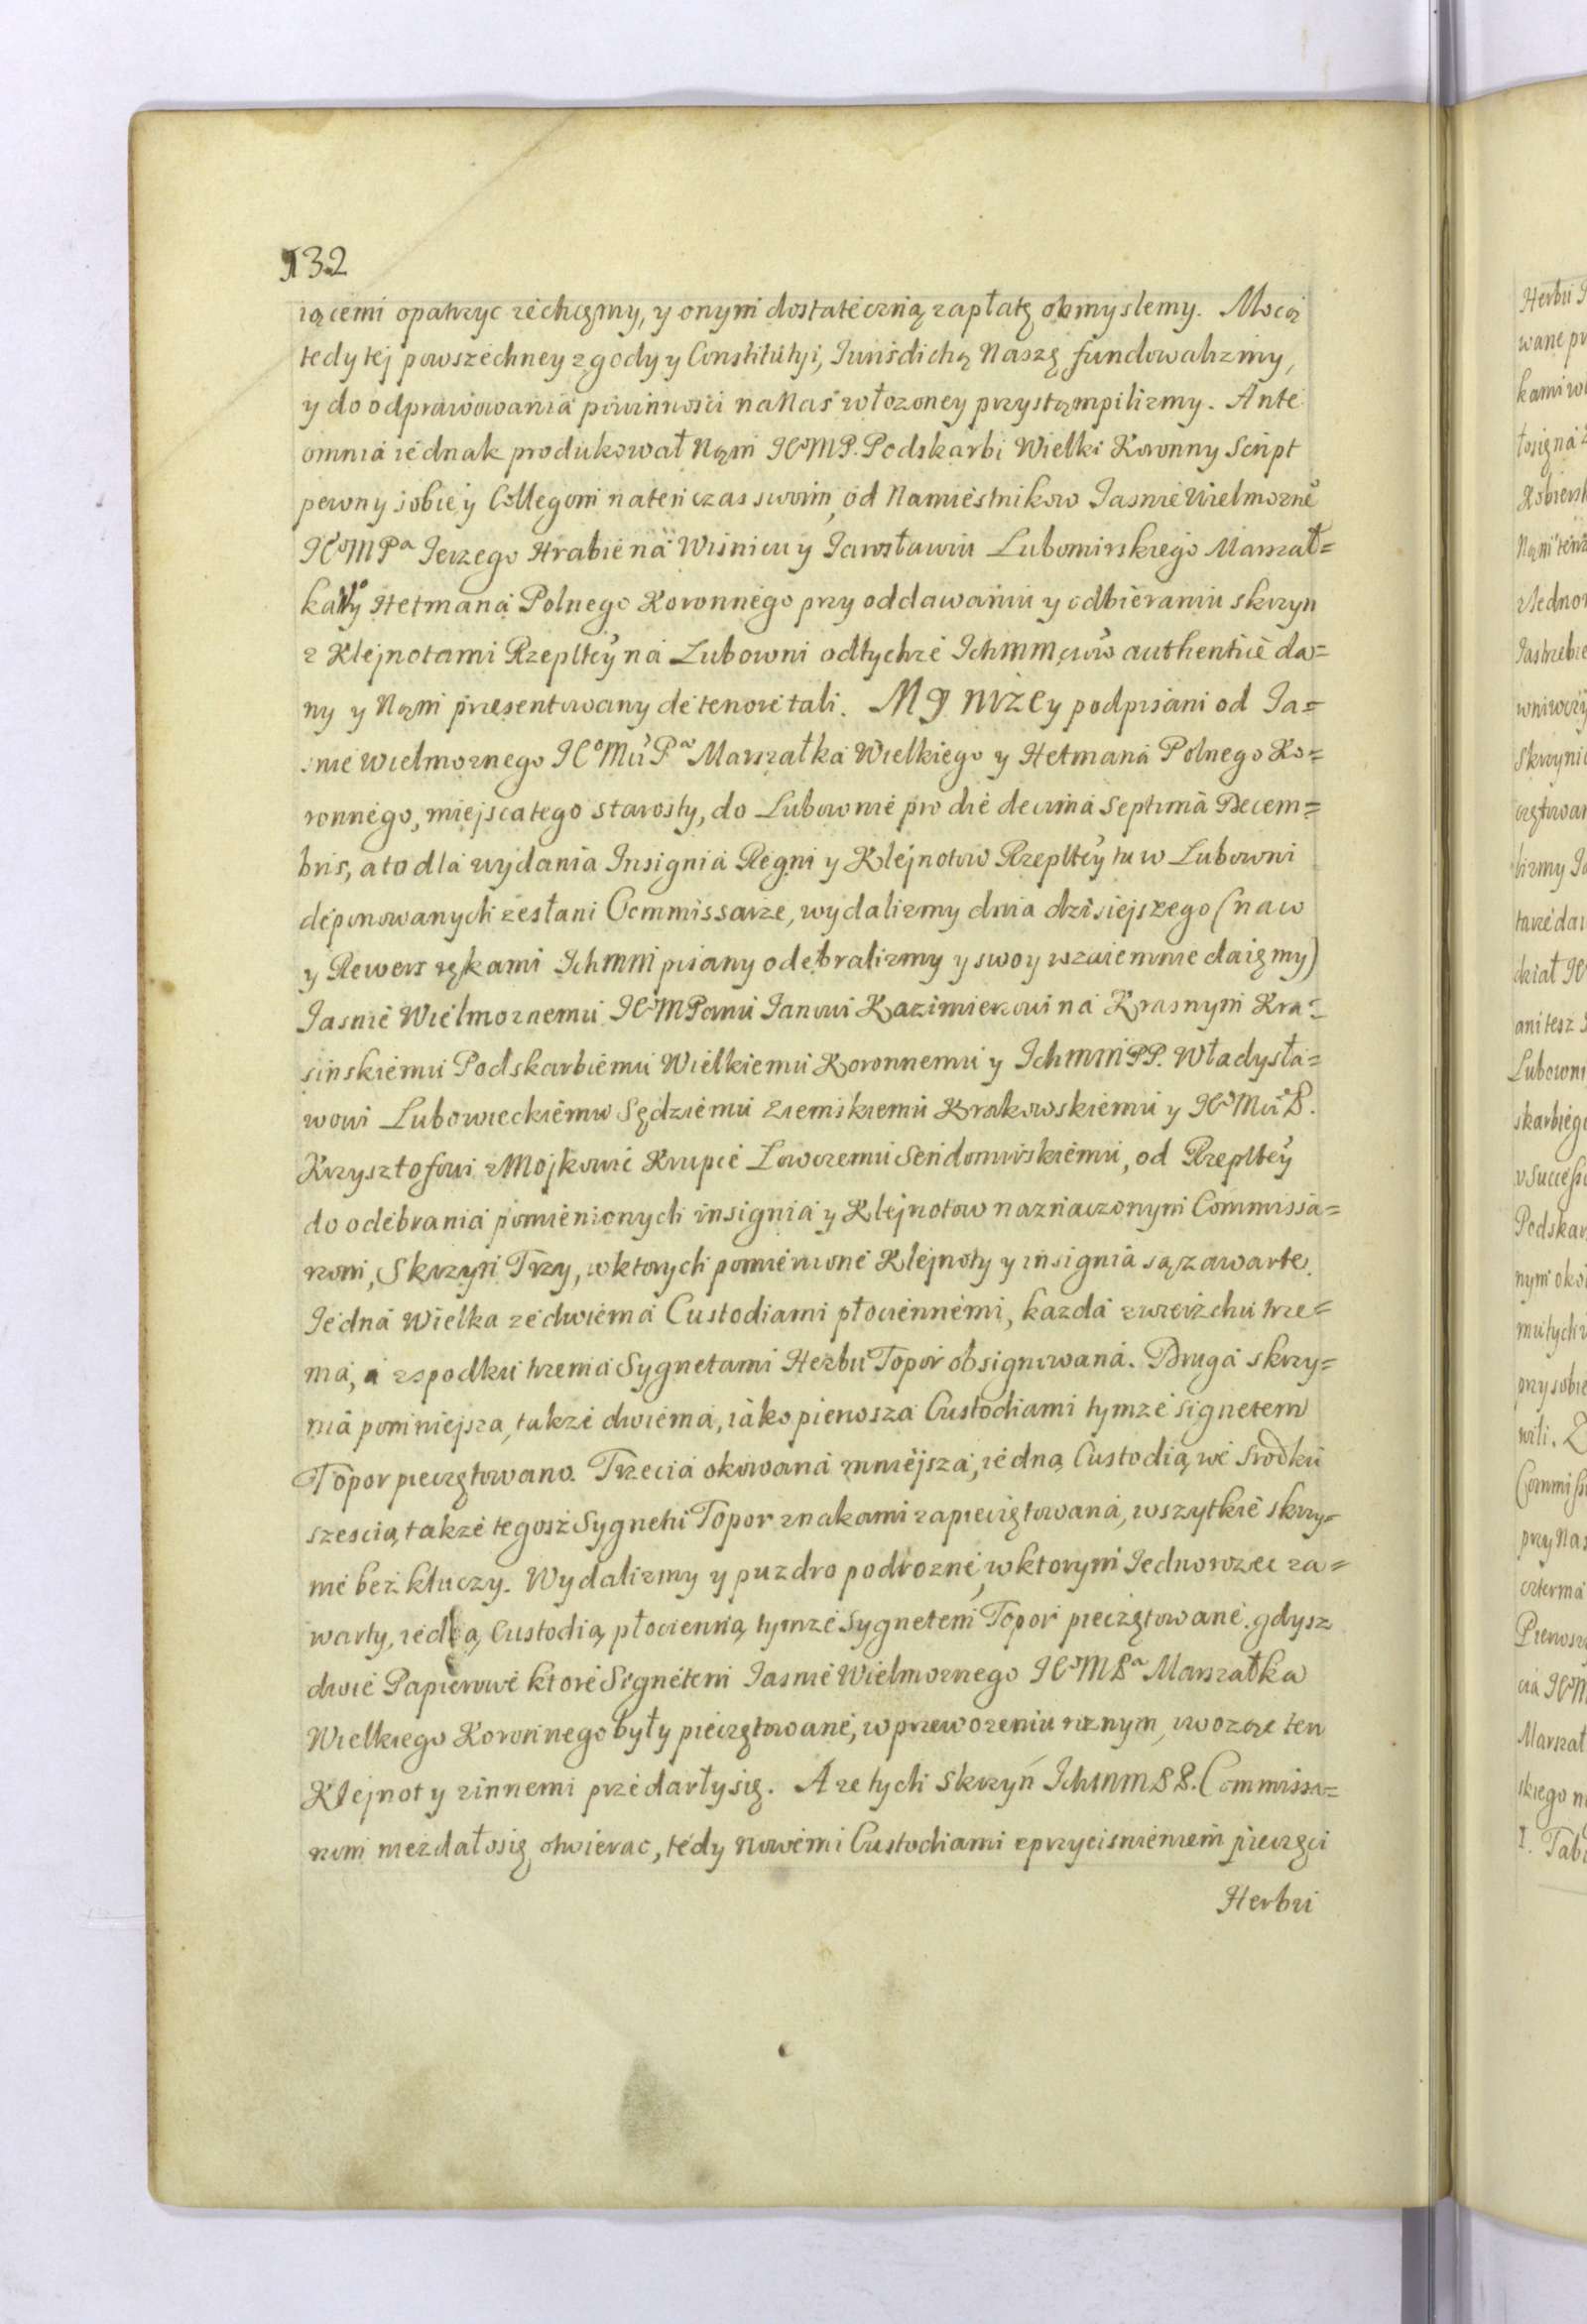 132
iącemi opatrzyc zechcęmy, y onym dostateczną zapłatę obmyslemy. Mocą
tedy tej powszechney zgody y Constitutyi, Iurisdictią Naszę fundowalizmy,
y do odprawowania powinnosci na Nas włozoney przystąmpilizmy. Ante
omnia iednak produkował Nąm JMP. Podskarbi Wielki Koronny Script
pewny sobie y Collegom naten czas swoim, od Namiestnikow Jasnie Wielmozne°
JMPa Jerzego Hrabie na Wisniczu y Jarosławiu Lubomirskiego Marszał=
ka y Hetmana Polnego Koronnego przy oddawaniu y odbieraniu skrzyn
z Klejnotami Rzeplłey na Lubowni od tychze Ichmmciow authentice da=
ny y Nąm presentowany de tenore tali. My nizey podpisani od Ja=
snie Wielmoznego JMci Pa Marszałka Wielkiego y Hetmana Polnego Ko=
ronnego, miejsca tego starosty, do Lubownie pro die decima septima Decem=
bris, a to dla wydania Insignia Regni y Klejnotow Rzeplłey tu w Lubowni
deponowanych zesłani Commissarze, wydalizmy dnia dzisiejszego (na co
y Rewers rękami Ichmm pisany odebralizmy y swoy wzaiemnie daięmy)
Jasnie Wielmoznemu JMPanu Janowi Kazimierzowi na Krasnym Kra=
sinskiemu Podskarbiemu Wielkiemu Koronnemu y Ichmm PP. Władysła=
wowi Lubowieckiemu Sędziemu Ziemskiemu Krakowskiemu y JMci P.
Krzysztofowi z Mojkowic Krupce Lowczemu Sendomirskiemu, od Rzeplłey
do odebrania pomienionych insignia y Klejnotow naznaczonym Commissa=
rzom, Skrzyn Trzy, w ktorych pomienione Klejnoty y insignia są zawarte.
Jedna Wielka ze dwiema Custodiami płociennemi, kazda z wierzchu trze=
ma, a zspodku trzema Sygnetami Herbu Topor obsignowana. Druga skrzy=
nia pomniejsza, takze dwiema, iako pierwsza Custodiami tymze signetem
Topor pieczętowano. Trzecia okowana mniejsza, iedną Custodią, we srodku
szescią, takze tegosz Sygnetu Topor znakami zapieczętowana, wszytkie skrzy=
nie bez kluczy. Wydalizmy y puzdro podrozne, w ktorym Jednorozec za=
warty, iedną, Custodią, płocienną, tymze Sygnetem Topor pieczętowane. gdysz
dwie Papierowe ktore Signetem Jasnie Wielmoznego JMPa Marszałka
Wielkiego Koronnego były pieczętowane, w przewozeniu roznym, wozęc ten
Klejnot y zinnemi przedarły się. A ze tych Skrzyn Ichmm PP. Commissa=
rzom niezdało się, otwierac, tedy nowemi Custodiami z przycisnieniem pieczęci
Herbu